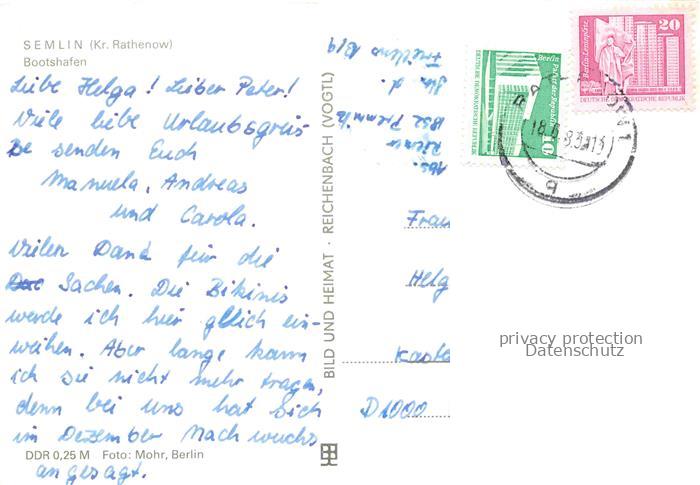 SEMLIN (Kr. Rathenow)
Bootshafen
Liebe Helga! Lieber Peter!
Viele liebe Urlaubsgrüs-
se senden Euch
Manuela, Andreas
und Carola.
Vielen Dank für die
Sachen. Die Bikinis
werde ich hier gleich ein-
weihen. Aber lange kann
ich sie nicht mehr tragen,
denn bei uns hat sich
im Dezember Nachwuchs
angesagt.
DDR 0,25 M Foto: Mohr, Berlin
BILD UND HEIMAT · REICHENBACH (VOGTL)
Abs.
Frau
Helg
D1000
Berlin Palast der Republik
10
DEUTSCHE DEMOKRATISCHE REPUBLIK
Berlin-Leninplatz
20
DEUTSCHE DEMOKRATISCHE REPUBLIK
privacy protection
Datenschutz